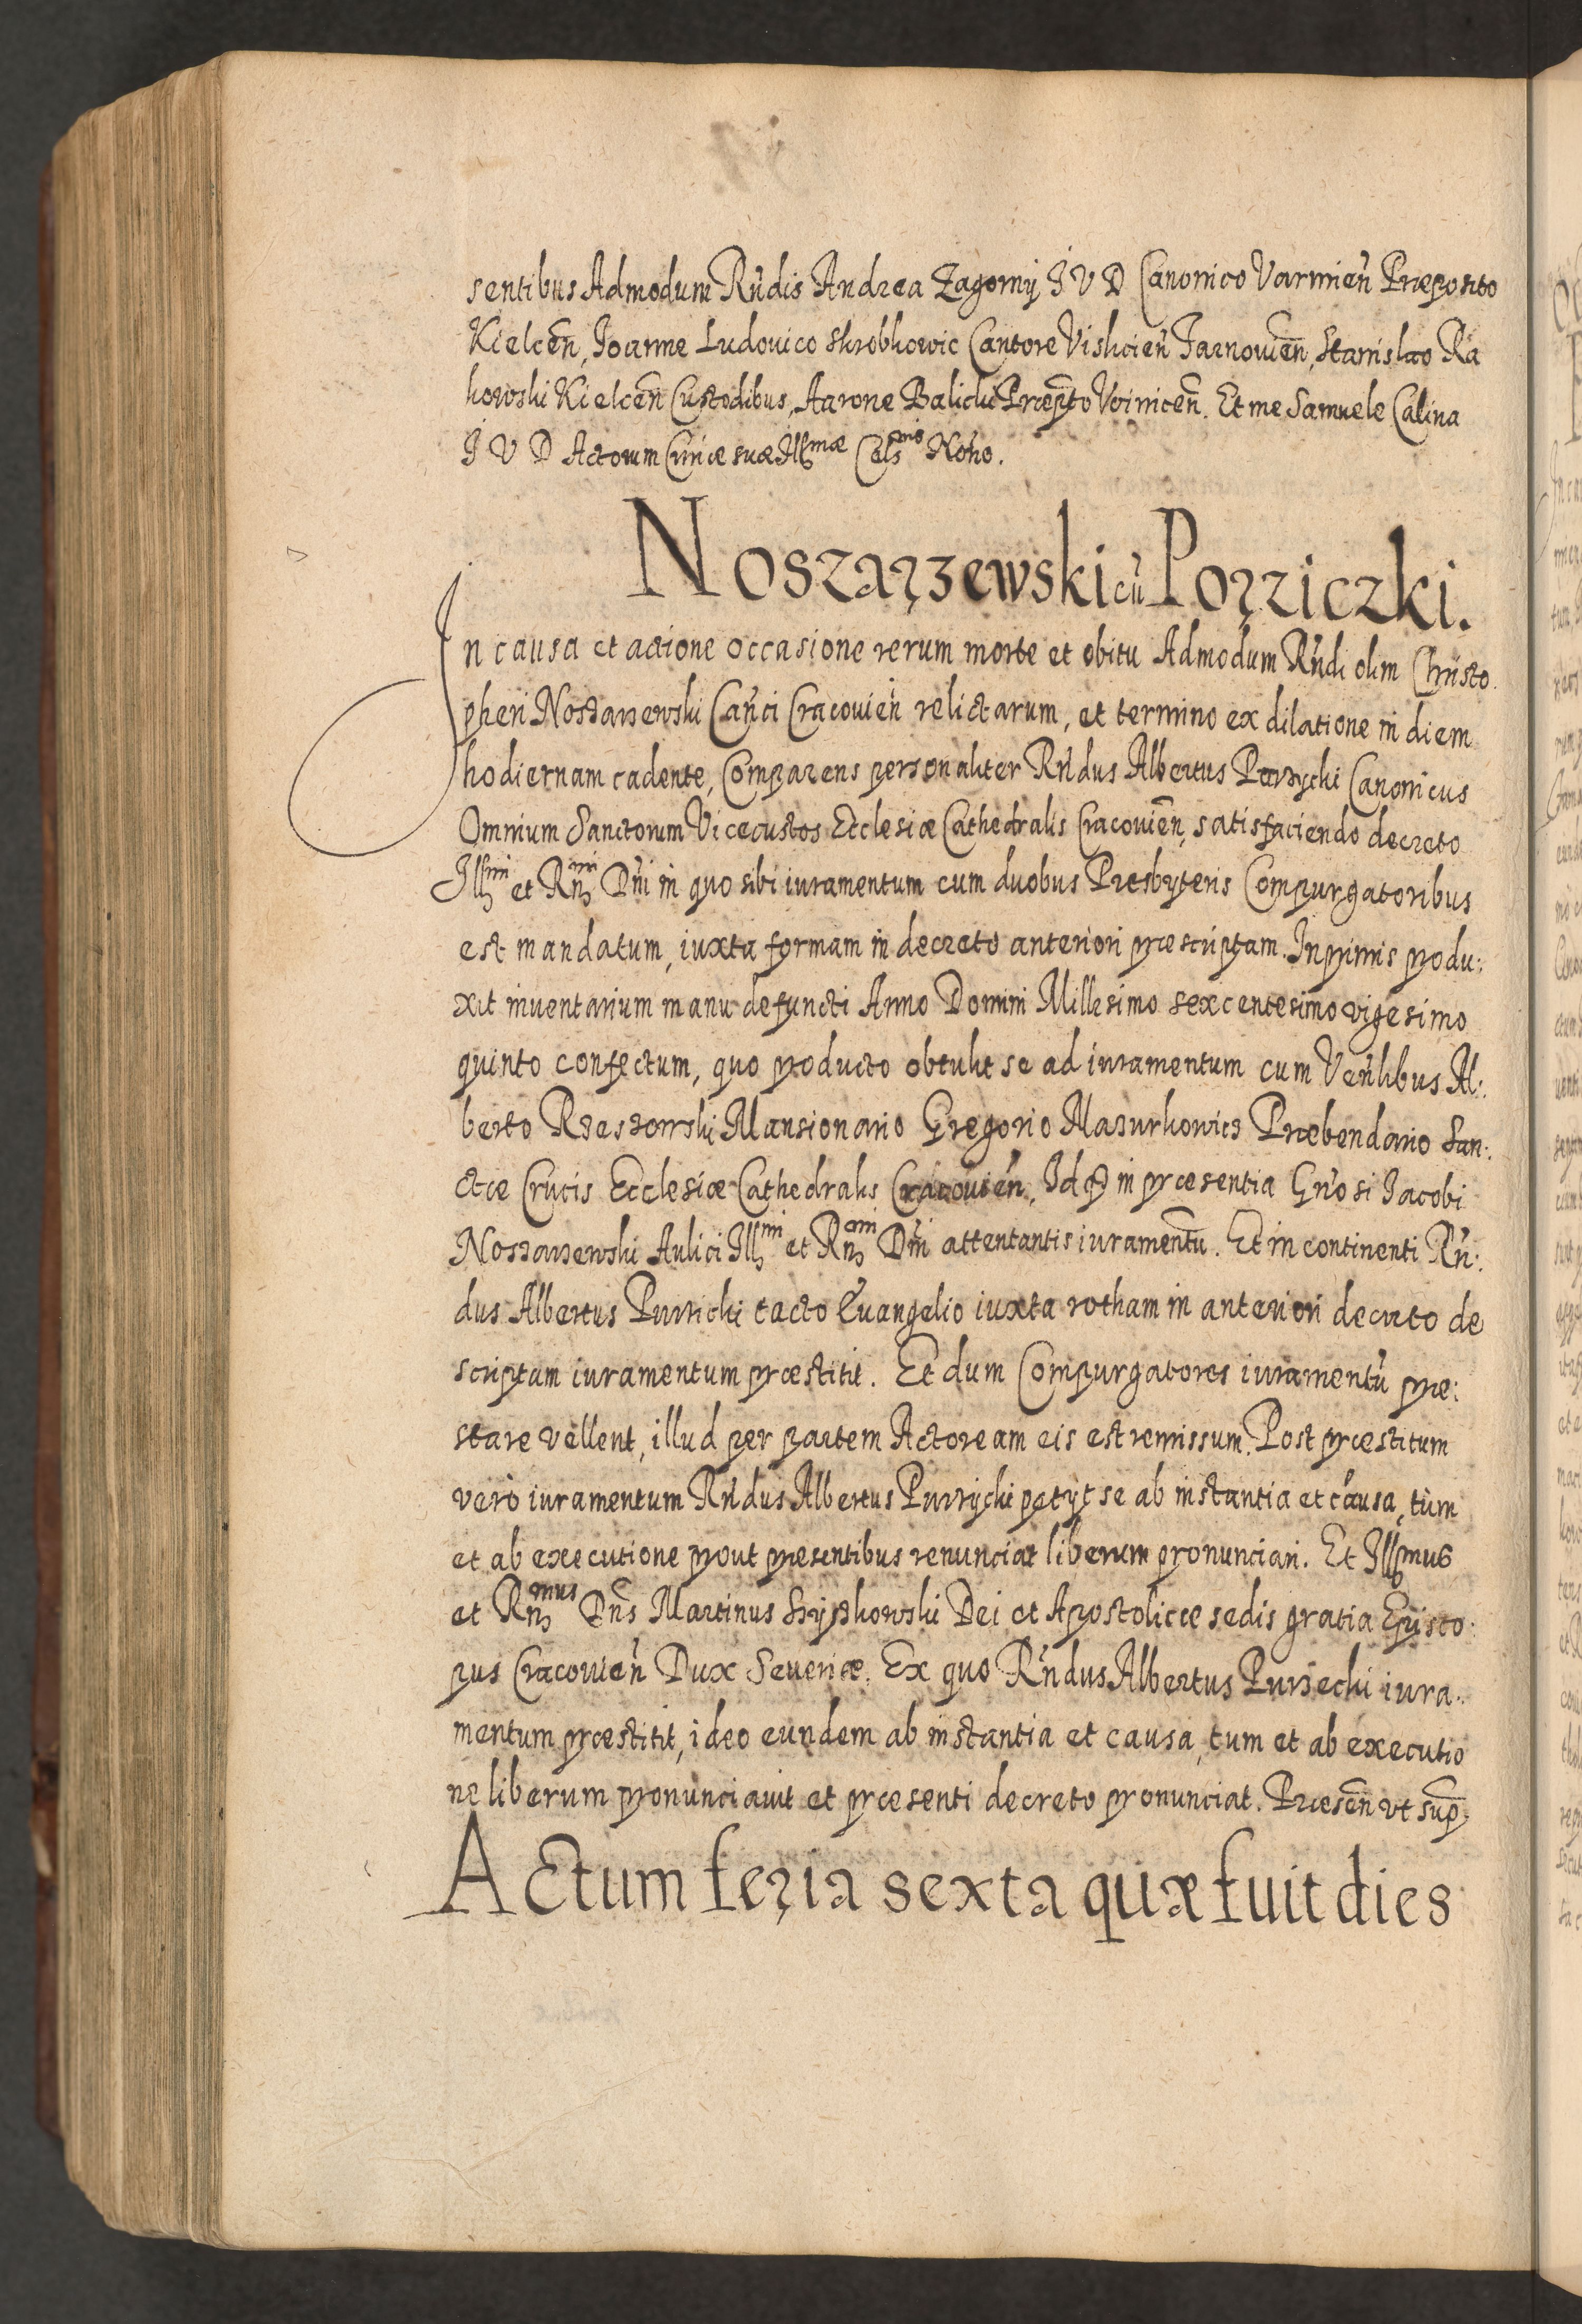 sentibus Admodum Rndis Andrea Zagorny I V D Canonico Varmien Præposito
Kielcen, Joanne Ludouico Skrobkowic Cantore Vislicien Tarnouien, Stanislao Ra
kowski Kielcen Custodibus, Aarone Balicki Præpto Voinicen. Et me Samuele Calina
I V D Actorum Curiæ suæ Illmæ Celsnis Notio.
Noszarzewski cū Porziczki.
In causa et actione occasione rerum morte et obitu Admodum Rndi olim Christo
pheri Noszarzewski Canci Cracouien relictarum, et termino ex dilatione in diem
hodiernam cadente, Comparens personaliter Rndus Albertus Porzycki Canonicus
Omnium Sanctorum Vicecustos Ecclesiæ Cathedralis Cracouien, satisfaciendo decreto
Illmi et Rnmi Dni in quo sibi iuramentum cum duobus Presbyteris Compurgatoribus
est mandatum, iuxta formam in decreto anteriori præscriptam. Inprimis produ:
xit inuentarium manu defuncti Anno Domini Millesimo sexcentesimo vigesimo
quinto confectum, quo producto obtulit se ad iuramentum cum Venlibus Al:
berto Rzeszowski Mansionario Gregorio Mazurkowicz Præbendario San:
ctæ Crucis Ecclesiæ Cathedralis Cracouien, Idq in præsentia Gnosi Jacobi
Noszarzewski Aulici Illmi et Rnmi Dni attentantis iuramentū. Et in continenti Rn:
dus Albertus Purzicki tacto Euangelio iuxta rotham in anteriori decreto de
scriptam iuramentum præstitit. Et dum Compurgatores iuramentū præ:
stare vellent, illud per partem Actoream eis est remissum. Post præstitum
verò iuramentum Rndus Albertus Purzycki petyt se ab instantia et causa, tùm
et ab executione prout præsentibus renunciat liberum pronunciari. Et Illmus
et Rnmus Dns Martinus Szyszkowski Dei et Apostolicæ sedis gratia Episco:
pus Cracouien Dux Seueriæ. Ex quo Rndus Albertus Purzecki iura:
mentum præstitit, ideo eundem ab instantia et causa, tum et ab executio
ne liberum pronunciauit et præsenti decreto pronunciat. Præsen vt sup.
Actum feria sexta quæ fuit dies